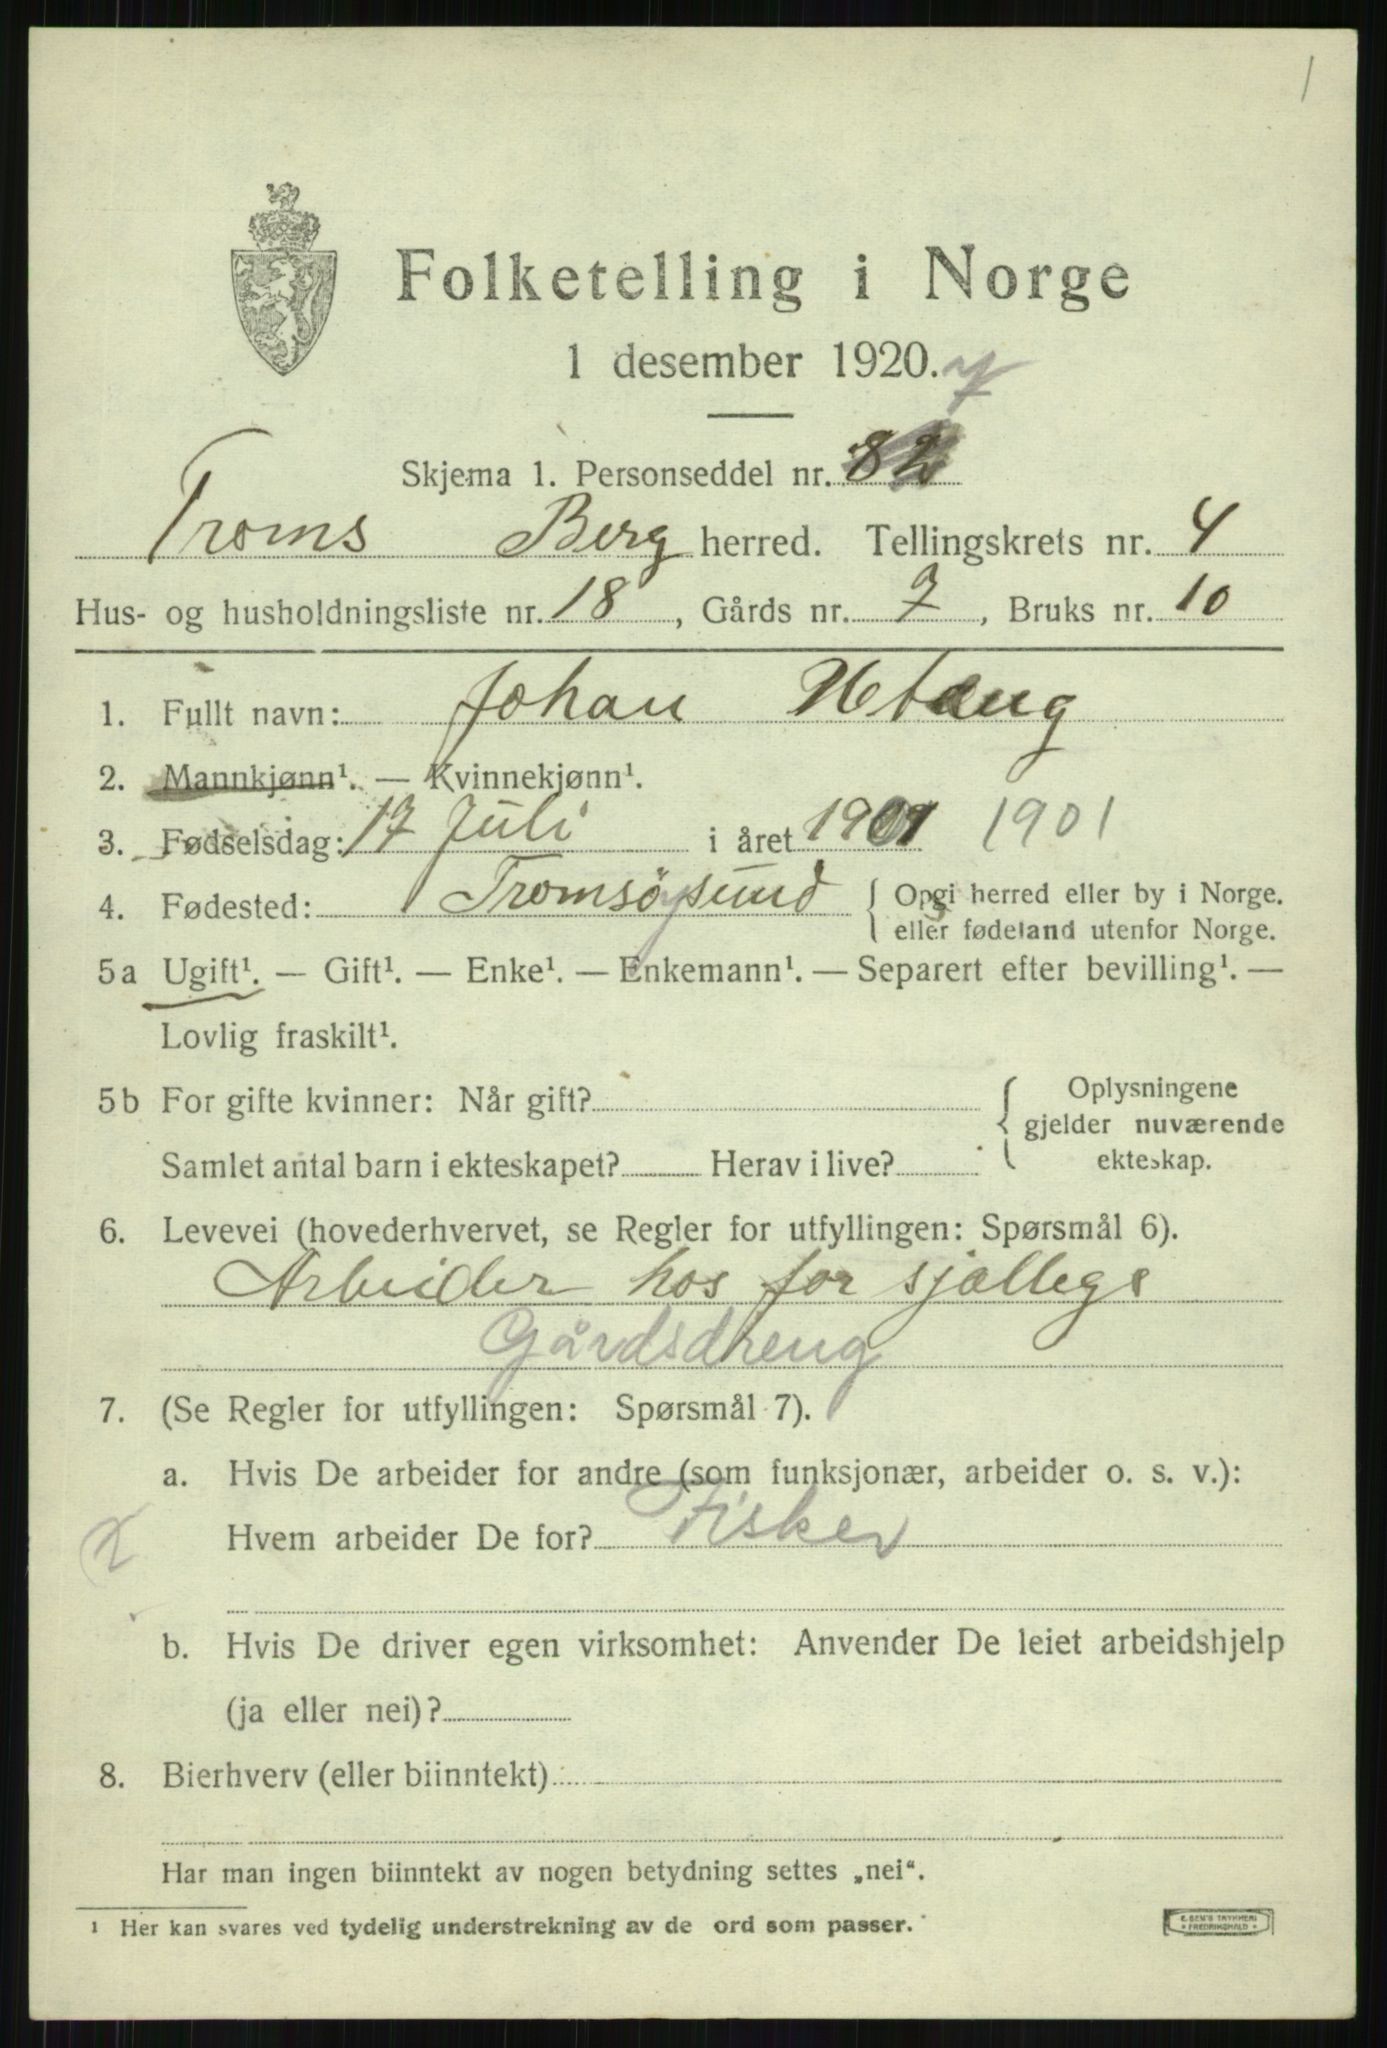 1
Folketelling i Norge
1 desember 1920.
7
Skjema 1. Personseddel nr. 82
Troms Berg herred. Tellingskrets nr. 4
Hus- og husholdningsliste nr. 18, Gårds nr. 7, Bruks nr. 10
1. Fullt navn: Johan
2. Mannkjønn¹. — Kvinnekjønn¹.
3. Fødselsdag: 17 Juli i året 1901 1901
4. Fødested: Tromsøysund { Opgi herred eller by i Norge.
eller fødeland utenfor Norge.
5a Ugift¹. — Gift¹. — Enke¹. — Enkemann¹. — Separert efter bevilling¹. —
Lovlig fraskilt¹.
5b For gifte kvinner: Når gift? { Oplysningene
gjelder nuværende
Samlet antal barn i ekteskapet? Herav i live? ekteskap.
6. Levevei (hovederhvervet, se Regler for utfyllingen: Spørsmål 6).
Arbeider hos for sjællegs
Gårdsdreng
7. (Se Regler for utfyllingen: Spørsmål 7).
a. Hvis De arbeider for andre (som funksjonær, arbeider o. s. v.):
Hvem arbeider De for? Fisker
b. Hvis De driver egen virksomhet: Anvender De leiet arbeidshjelp
(ja eller nei)?
8. Bierhverv (eller biinntekt)
Har man ingen biinntekt av nogen betydning settes „nei“.
¹ Her kan svares ved tydelig understrekning av de ord som passer.
E. SEM'S TRYKKERI
FREDRIKSHALD